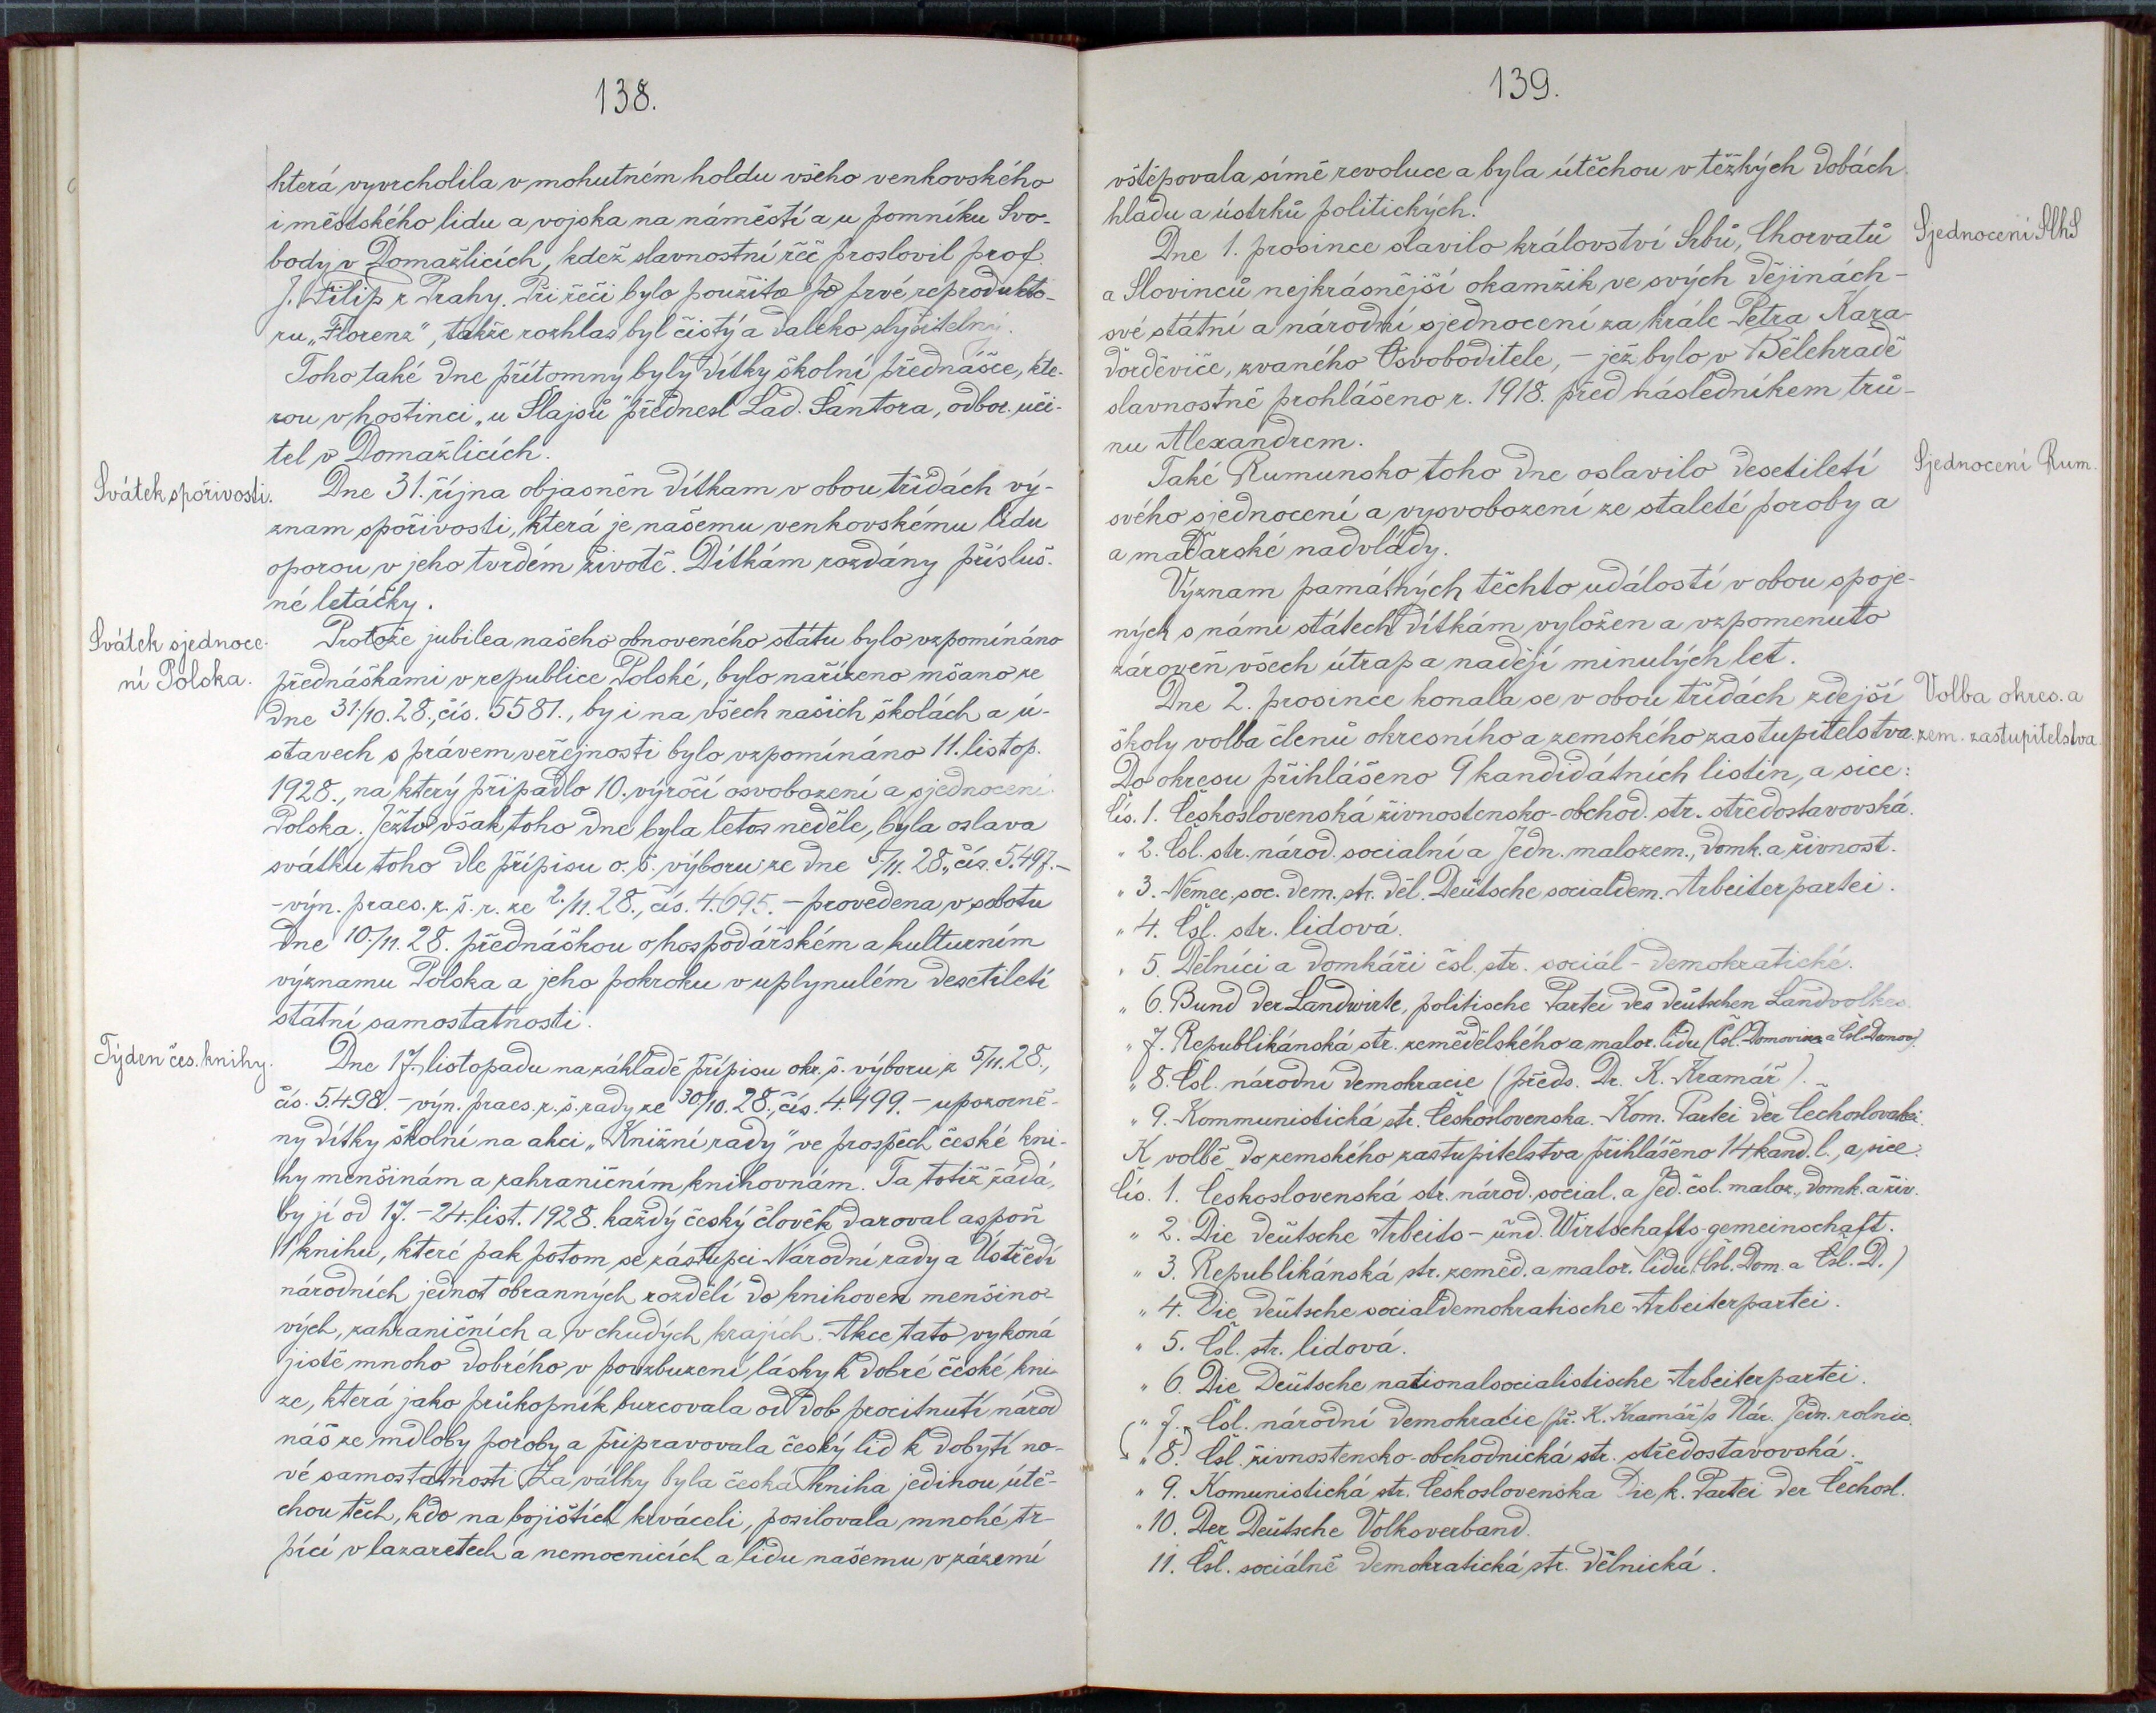 138.
která vyvrcholila v mohutném holdu všeho venkovského
i městského lidu a vojska na náměstí a u pomníku Svo-
body v Domažlicích, kdež slavnostní řeč proslovil prof.
J. Filip z Prahy. Při řeči bylo použito po prvé reprodukto-
ru „Florenz", takže rozhlas byl čistý a daleko slyšitelný.
Toho také dne přítomny byly dítky školní přednášce, kte-
rou v hostinci „u Šlajsů" přednesl Lad. Šantora, odbor. uči-
tel v Domažlicích.
Svátek spořivosti.
Dne 31. října objasněn dítkam v obou třídách vý-
znam spořivosti, která je našemu venkovskému lidu
oporou v jeho tvrdém životě. Dítkám rozdány přísluš-
né letáčky.
Svátek sjednoce-
ní Polska.
Protože jubilea našeho obnoveného státu bylo vzpomínáno
přednáškami v republice Polské, bylo nařízeno mšano ze
dne 31./10. 28., čís. 5581., by i na všech našich školách a ú-
stavech s právem veřejnosti bylo vzpomínáno 11. listop.
1928., na který připadlo 10. výročí osvobození a sjednocení
Polska. Ježto však toho dne byla letos neděle, byla oslava
svátku toho dle přípisu o. š. výboru ze dne 5/11. 28., čís. 5.497.-
-výn. praes. z. š. r. ze 2./11. 28., čís. 4.695. - provedena v sobotu
dne 10./11. 28. přednáškou o hospodářském a kulturním
významu Polska a jeho pokroku v uplynulém desetiletí
státní samostatnosti.
Týden čes. knihy.
Dne 17. listopadu na základě přípisu okr. š. výboru z 5/11. 28.,
čís. 5.498. - výn. praes. z. š. rady ze 30./10. 28., čís. 4.499. - upozorně-
ny dítky školní na akci „Knižní rady" ve prospěch české kni-
hy menšinám a zahraničním knihovnám. Ta totiž žádá,
by jí od 17. - 24. list. 1928. každý český člověk daroval aspoň
1 knihu, které pak potom se zástupci Národní rady a Ústředí
národních jednot obranných rozdělí do knihoven menšino-
vých, zahraničních a v chudých krajích. Akce tato vykoná
jistě mnoho dobrého v povzbuzení lásky k dobré české kni-
ze, která jako průkopník burcovala od dob procitnutí národ
náš ze mdloby poroby a připravovala český lid k dobytí no-
vé samostatnosti. Za války byla česká kniha jedinou útě-
chou těch, kdo na bojištích krváceli, posilovala mnohé, tr-
pící v lazaretech a nemocnicích a lidu našemu v zázemí
139.
vštěpovala símě revoluce a byla útěchou v těžkých dobách
hladu a ústrků politických.
Sjednocení SChS
Dne 1. prosince slavilo království Srbů, Chorvatů
a Slovinců nejkrásnější okamžik ve svých dějinách -
své státní a národní sjednocení za krále Petra Kara-
ďorděviče, zvaného Osvoboditele, - jež bylo v Bělehradě
slavnostně prohlášeno r. 1918. před následníkem trů-
nu Alexandrem.
Sjednocení Rum.
Také Rumunsko toho dne oslavilo desetiletí
svého sjednocení a vysvobození ze staleté poroby a
a maďarské nadvlády.
Význam památných těchto událostí v obou spoje-
ných s námi státech dítkám vyložen a vzpomenuto
zároveň všech útrap a nadějí minulých let.
Volba okres. a
zem. zastupitelstva.
Dne 2. prosince konala se v obou třídách zdejší
školy volba členů okresního a zemského zastupitelstva.
Do okresu přihlášeno 9 kandidátních listin, a sice:
Čís. 1. Československá živnostensko-obchod. str. středostavovská.
„ 2. Čsl. str. národ. socialní a Jedn. malozem., domk. a živnost.
„ 3. Němec. soc. dem. str. děl. Deutsche socialdem. Arbeiterpartei.
„ 4. Čsl. str. lidová.
„ 5. Dělníci a domkáři čsl. str. sociál-demokratické.
„ 6. Bund der Landwirte, politische Partei des deutschen Landvolkes.
„ 7. Republikánská str. zemědělského a malor. lidu (Čsl. Domovina a Čsl. Domov).
„ 8. Čsl. národní demokracie (předs. Dr. K. Kramář).
„ 9. Kommunistická str. Československa. Kom. Partei der Čechoslovakei.
K volbě do zemského zastupitelstva přihlášeno 14 kand. l., a sice:
Čís. 1. Československá str. národ. social. a Jed. čsl. maloz., domk. a živ.
„ 2. Die deutsche Arbeits- und Wirtschafts-gemeinschaft.
„ 3. Republikánská str. zeměd. a malor. lidu (Čsl. Dom. a Čsl. D.)
„ 4. Die deutsche socialdemokratische Arbeiterpartei.
„ 5. Čsl. str. lidová.
„ 6. Die Deutsche nationalsocialistische Arbeiterpartei.
„ 7. Čsl. národní demokracie (př. K. Kramář) s Nár. Jedn. rolnic.
„ 8. Čsl. živnostensko-obchodnická str. středostavovská.
„ 9. Komunistická str. Československa Die k. Partei der Čechosl.
„ 10. Der Deutsche Volksverband.
11. Čsl. sociálně demokratická str. dělnická.